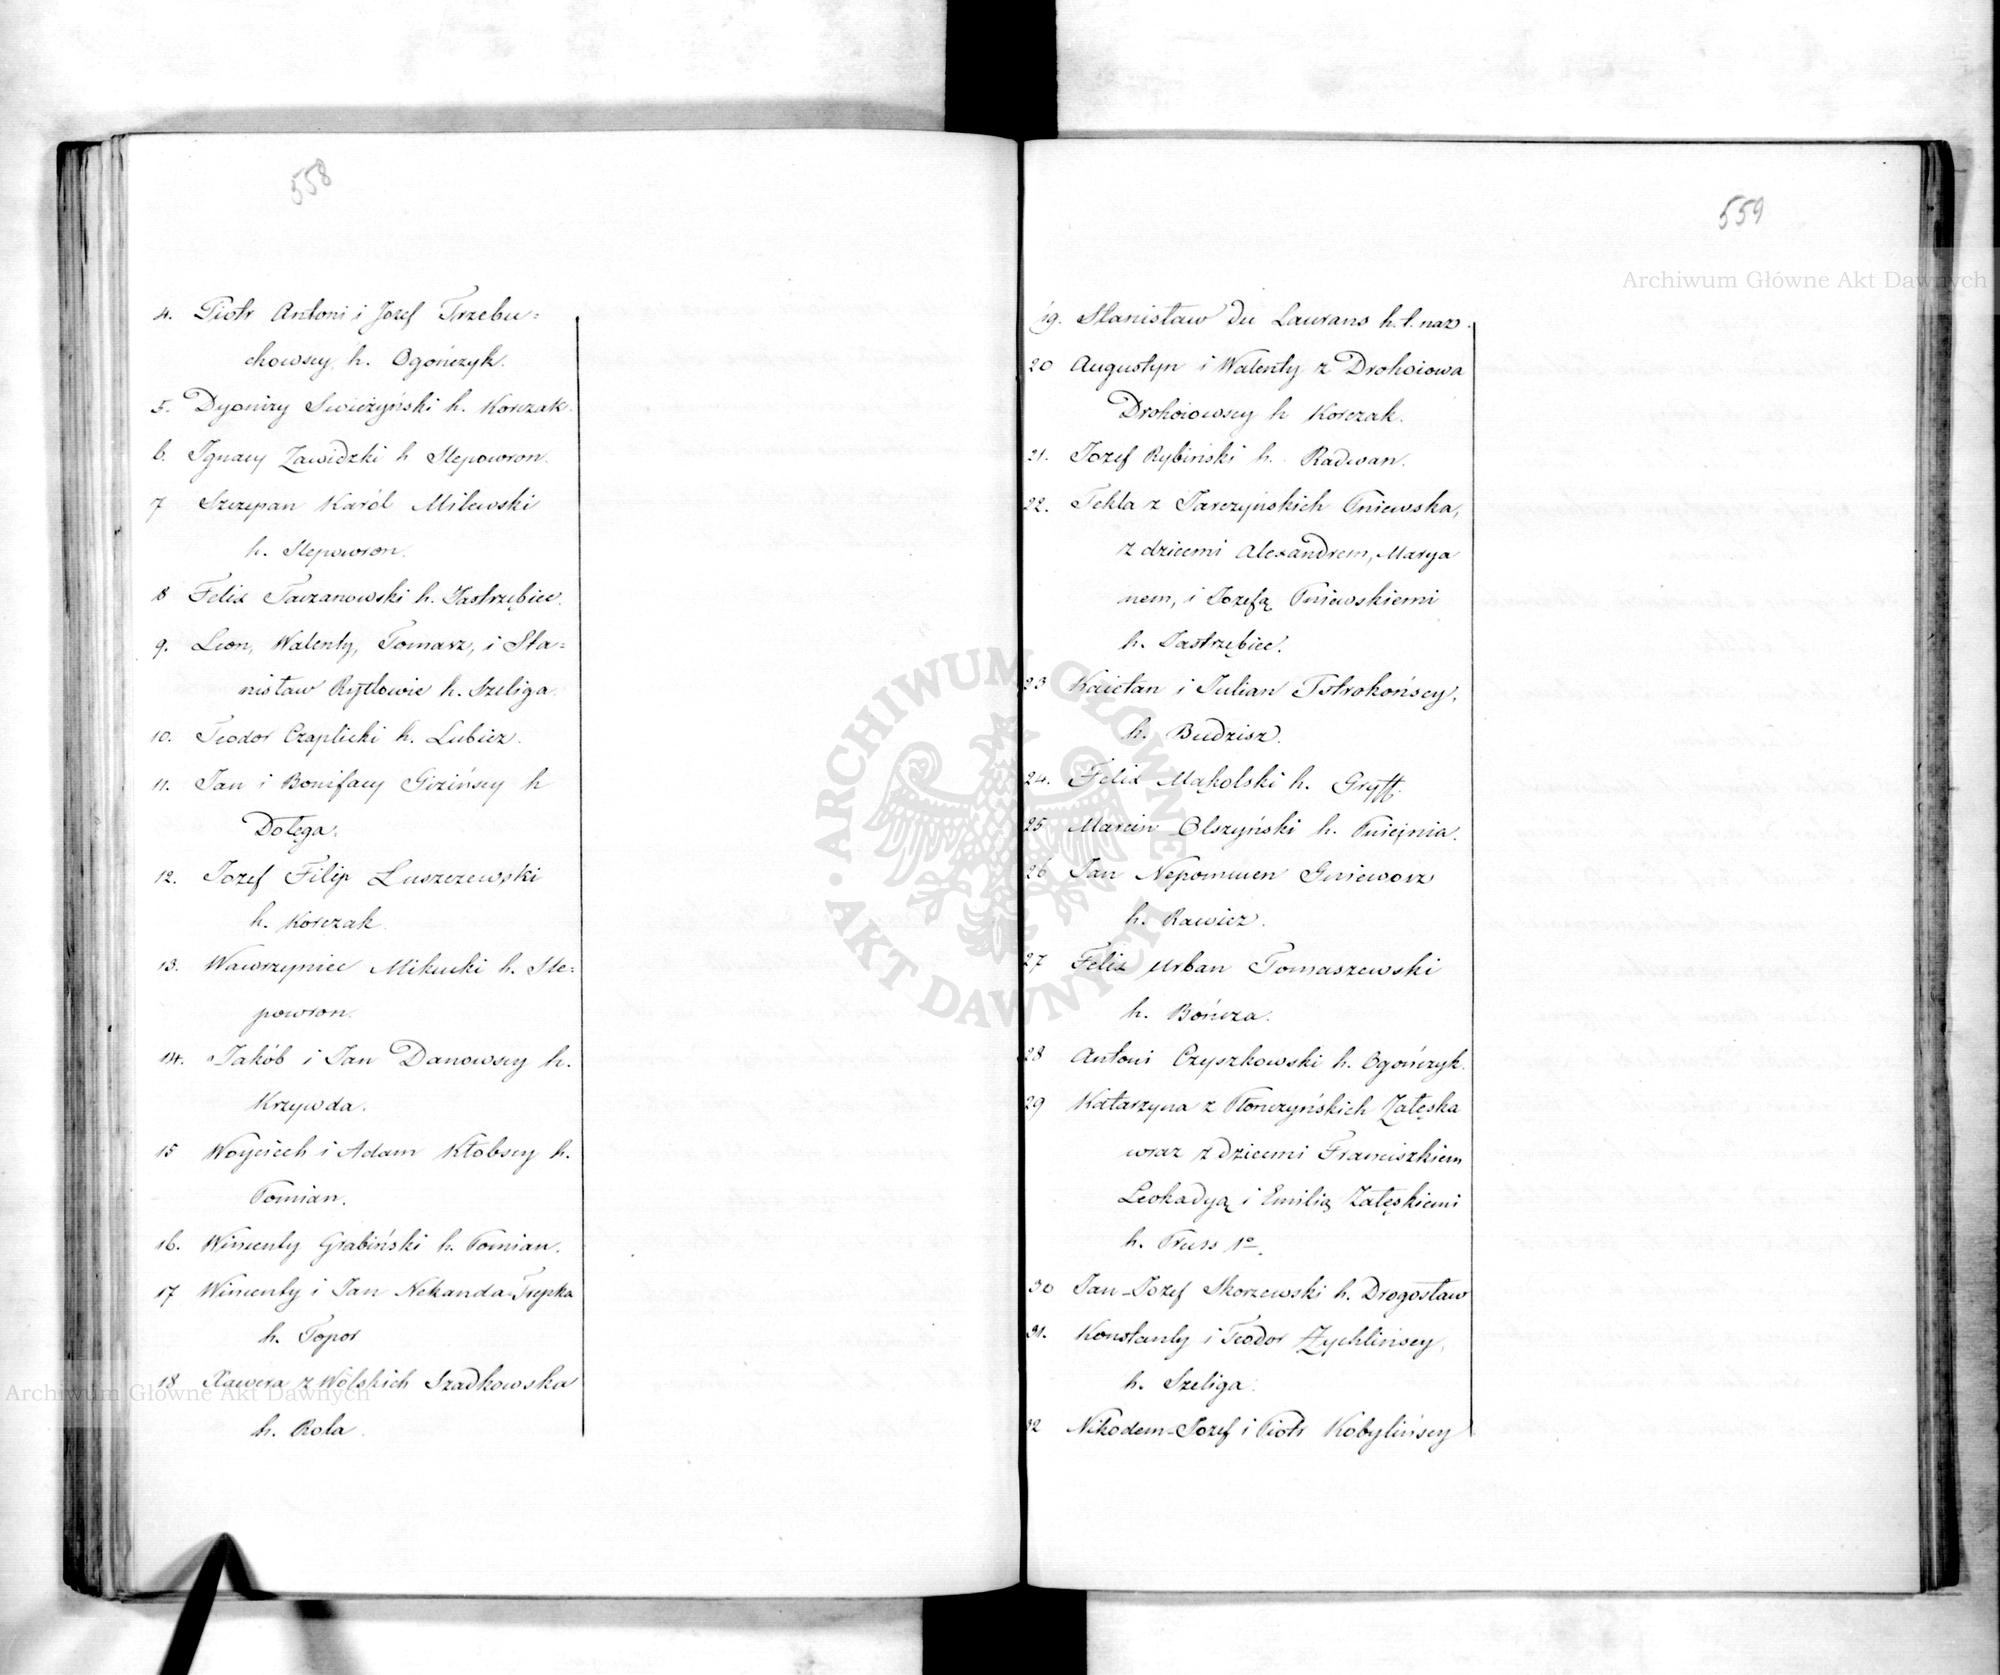 558
4. Piotr Antoni i Jozef Trzebu=
chowscy h. Ogończyk.
5. Dyonizy Swieżyński h. Korczak.
6. Ignacy Zawidzki h Slepowron.
7 Szczepan Karól Milewski
h. Slepowron.
8 Felix Taczanowski h. Jastrzębiec.
9. Leon, Walenty, Tomasz, i Sta=
nisław Rytlowie h. Szeliga.
10. Teodor Czaplicki h. Lubicz.
11. Jan i Bonifacy Gizińscy h
Dołęga.
12. Jozef Filip Łuszczewski
h. Korczak.
13. Wawrzyniec Mikucki h. Sle=
powron.
14. Jakób i Jan Danowscy h.
Krzywda.
15 Woyciech i Adam Kłobscy h.
Pomian.
16. Wincenty Grabiński h. Pomian.
17 Wincenty i Jan Nekanda-Trepka
h. Topor
18 Xawera z Wolskich Szadkowska
h. Rola.
559
19. Stanisław du Laurans h. t. naz.
20 Augustyn i Walenty z Drohoiowa
Drohoiowscy h Korczak.
21. Jozef Rybiński h. Radwan.
22. Tekla z Jarczyńskich Pniewska,
z dziecmi Alexandrem, Marya
nem, i Jozefą Pniewskiemi
h. Jastrzębiec.
23 Kaietan i Julian Ostrokońscy,
h. Budzisz.
24. Felix Mąkolski h. Gryff.
25 Marcin Olszyński h. Pniejnia.
26 Jan Nepomucen Gniewosz
h. Rawicz.
27 Felix Urban Tomaszewski
h. Bończa.
28 Antoni Czyszkowski h. Ogończyk.
29 Katarzyna z Płonczyńskich Załęska
wraz z dziecmi Franciszkiem
Leokadyą i Emilią Załęskiemi
h. Pruss 1º.
30 Jan-Jozef Skorzewski h. Drogosław
31. Konstanty i Teodor Zychlińscy,
h. Szeliga.
32 Nikodem-Jozef i Piotr Kobylińscy
Archiwum Główne Akt Dawnych
ARCHIWUM GŁÓWNE
· AKT DAWNYCH ·
Archiwum Główne Akt Dawnych